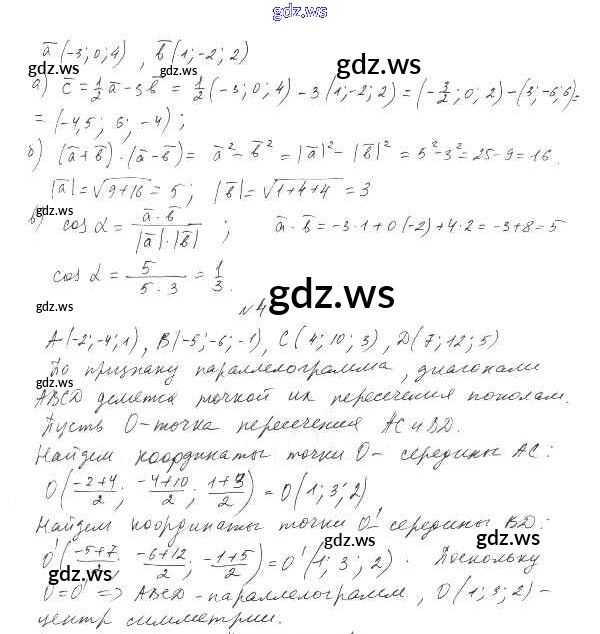 gdz.ws
a̅ (-3; 0; 4) , b̅ (1; -2; 2)
gdz.ws
gdz.ws
а) c̅ = 1/2 a̅ - 3b̅ = 1/2 (-3; 0; 4) - 3 (1; -2; 2) = (-3/2; 0; 2) - (3; -6; 6) =
= (-4,5; 6; -4) ;
gdz.ws
gdz.ws
б) (a̅ + b̅) · (a̅ - b̅) = a̅² - b̅² = |a̅|² - |b̅|² = 5² - 3² = 25 - 9 = 16.
|a̅| = √9+16 = 5 ; |b̅| = √1+4+4 = 3
gdz.ws
gdz.ws
в) cos α = a̅ · b̅ / |a̅| · |b̅| ; a̅ · b̅ = -3 · 1 + 0 (-2) + 4 · 2 = -3 + 8 = 5
cos α = 5 / 5 · 3 = 1/3.
gdz.ws
gdz.ws
№ 4
A (-2; -4; 1) , B (-5; -6; -1) , C (4; 10; 3) , D (7; 12; 5)
gdz.ws
По признаку параллелограмма, диагонали
gdz.ws
ABCD делятся точкой их пересечения пополам.
gdz.ws
Пусть O - точка пересечения AC и BD.
Найдем координаты точки O - середины AC:
gdz.ws
O (-2+4/2 ; -4+10/2 ; 1+3/2) = O (1; 3; 2)
gdz.ws
Найдем координаты точки O' середины BD:
gdz.ws
O' (-5+7/2 ; -6+12/2 ; -1+5/2) = O' (1; 3; 2) . Поскольку
gdz.ws
O = O' => ABCD - параллелограмм, O (1; 3; 2) -
центр симметрии.
gdz.ws